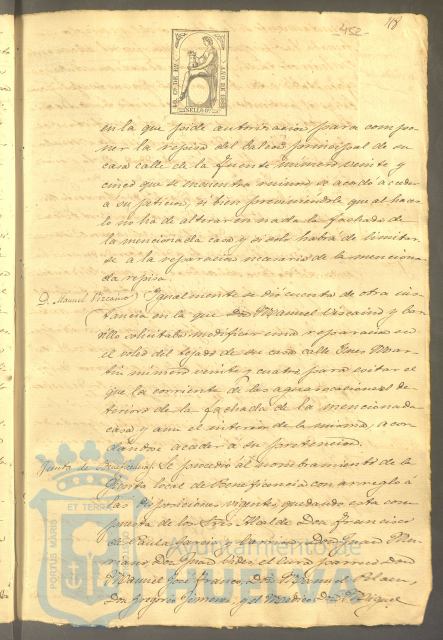 452
48
en la que pide autorizacion para compo-
ner la repisa del balcon principal de su
casa calle de la Fuente número veinte y
cinco que se encuentra ruinosa se acordó acceder
á su peticion, si bien previniendole que al hacer-
lo no ha de alterar en nada la fachada de
la mencionada casa y si solo habrá de limitar-
se á la reparacion necesaria de la menciona-
da repisa.
D. Manuel Vizcaino
Igualmente se dió cuenta de otra ins-
tancia en la que Don Manuel Vizcaino y
solicitaba modificar una reparacion en
el voled del tejado de su casa calle
número veinte y cuatro para evitar el
que la corriente de las aguas ocasione el de-
terioro de la fachada de la mencionada
casa y aun el interior de la misma, acor-
dandose acceder á su pretencion.
Junta de Beneficencia
Se procedió al nombramiento de la
Junta local de Beneficencia con arreglo á
las disposiciones vigentes, quedando esta com-
puesta de los Sres. Alcalde Don Francisco
de Paula Garcia y Don Juan
Don Juan el Cura parroco Don
Manuel José Franco, Don Manuel
Don Gregorio Jimenez y el Medico Don Miguel
PORTUS MARIS ET TERRAE
Ayuntamiento de
HUELVA